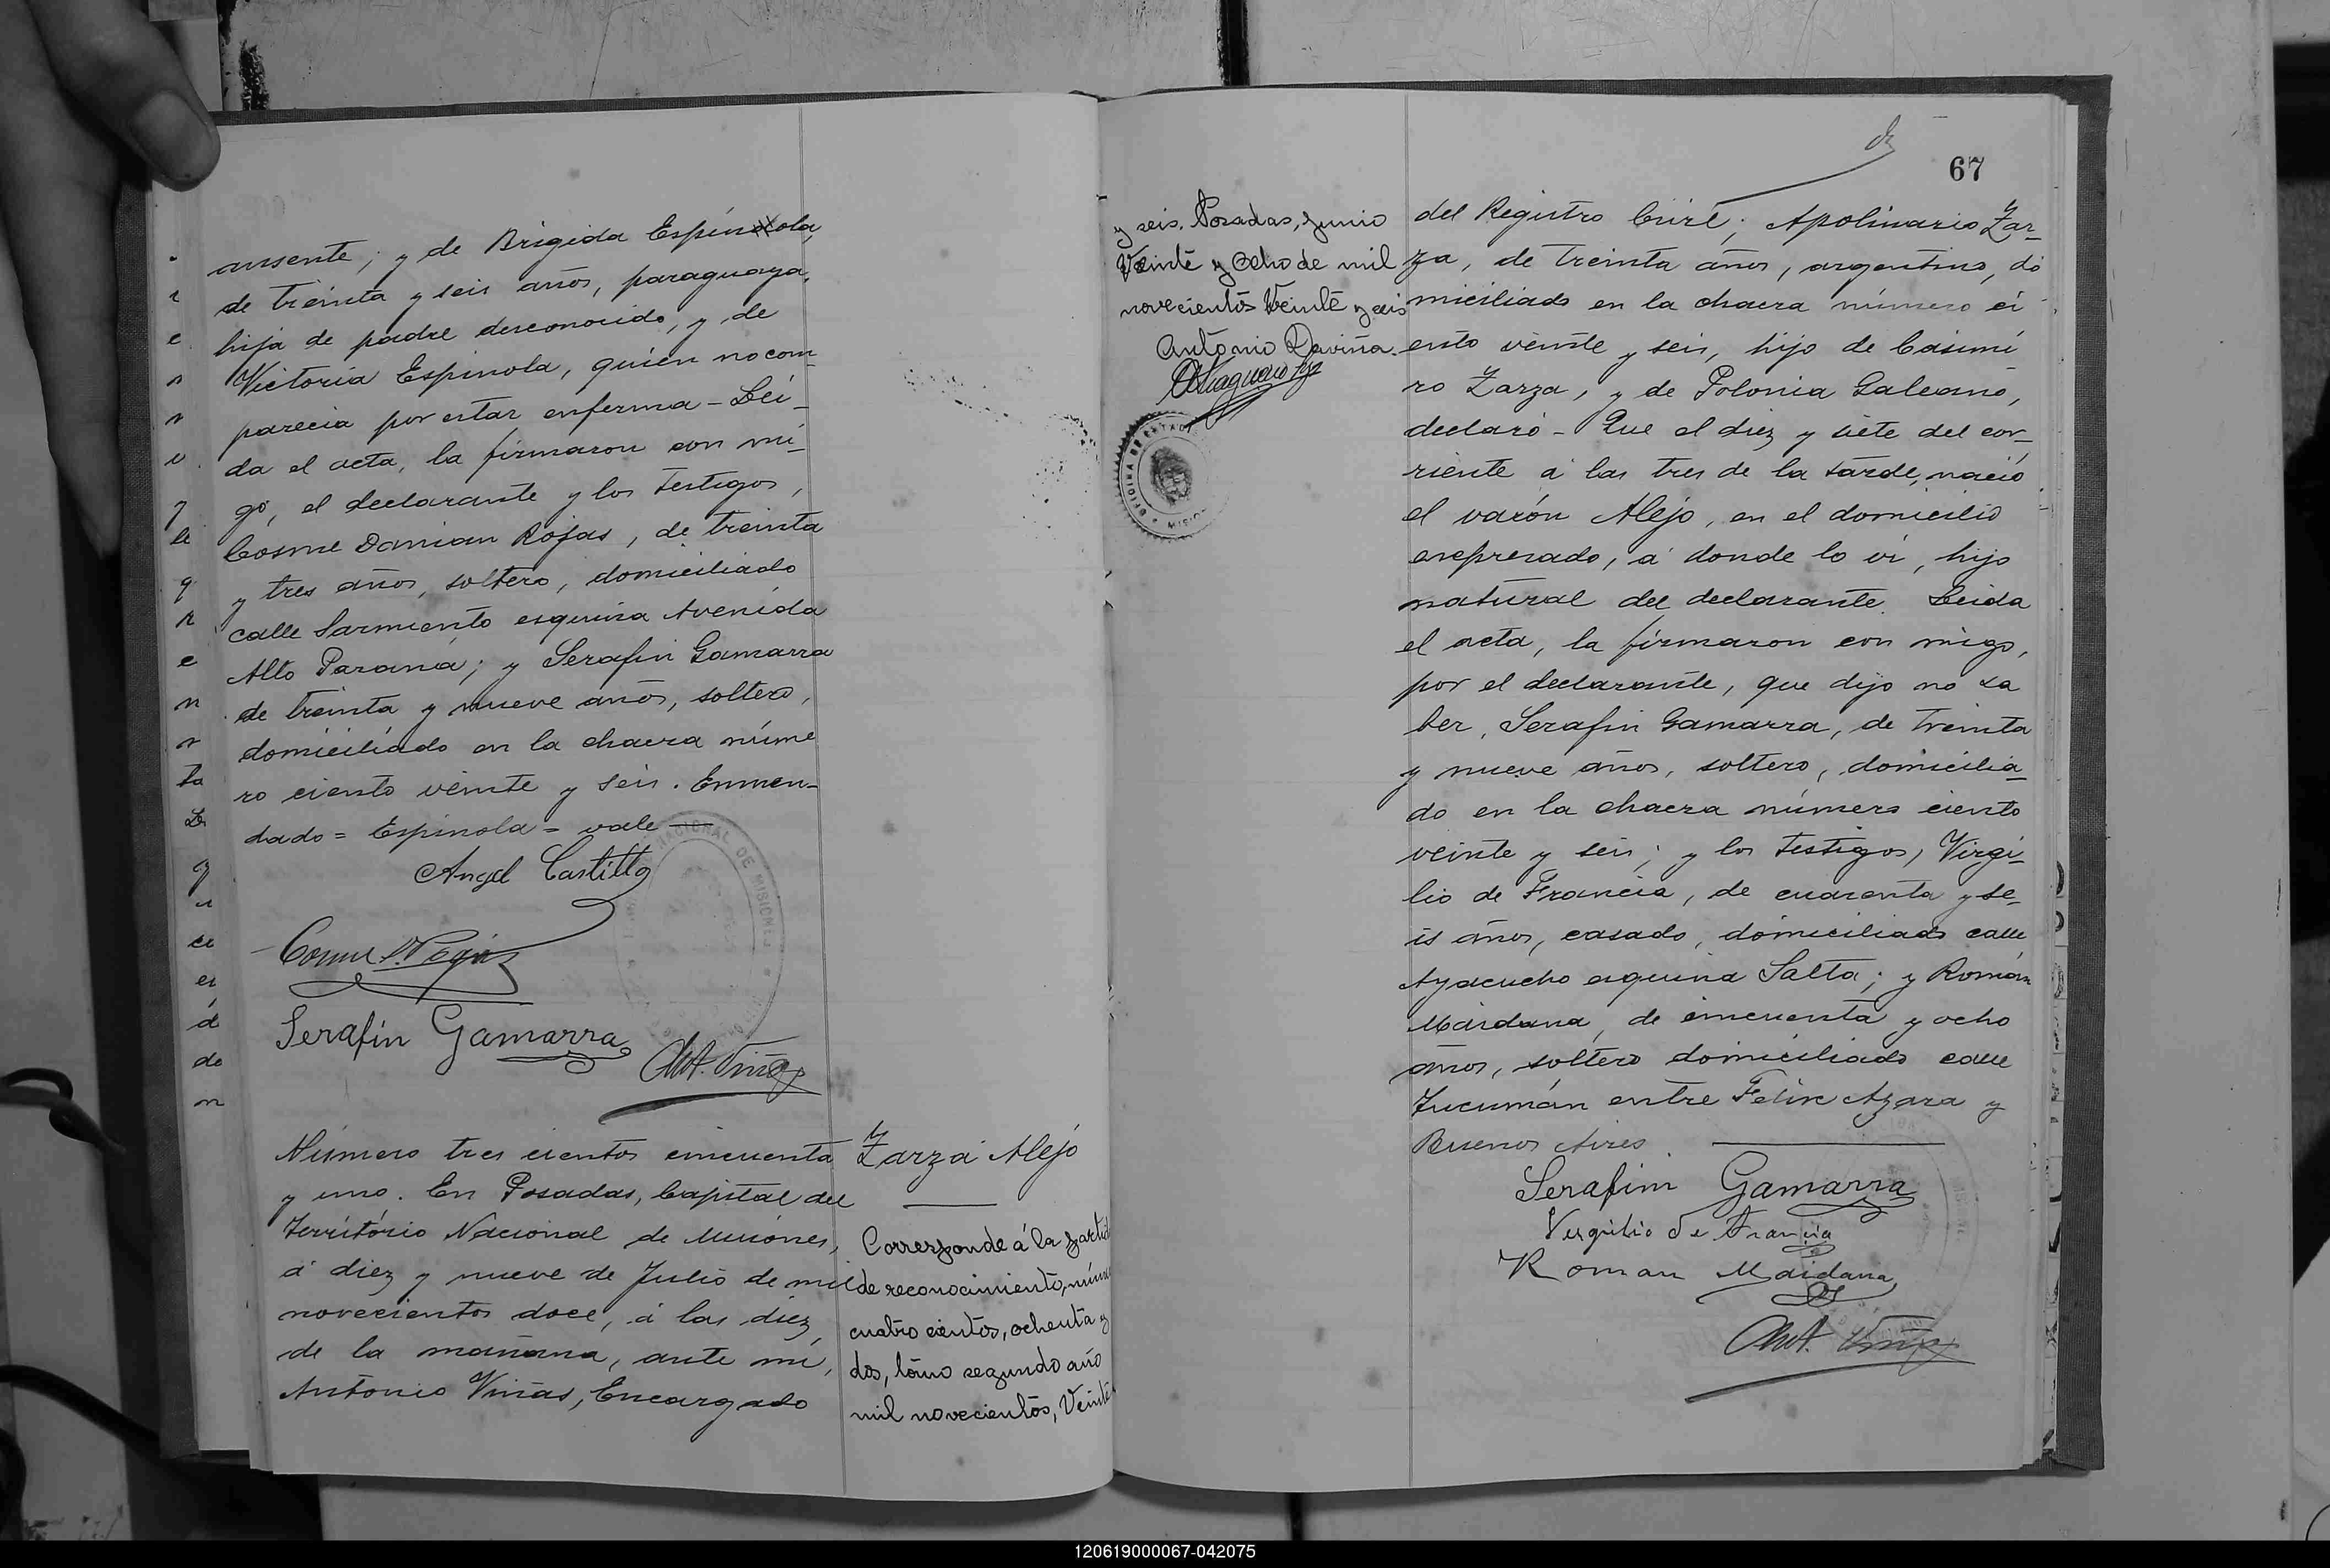 ausente; y de Brigida Espinola,
de treinta y seis años, paraguaya,
hija de padre desconocido, y de
Victoria Espinola, quién no com-
parecia por estar enferma - Léi-
da el acta, la firmaron con mi-
go, el declarante y los testigos,
Cosme Damian Rojas, de treinta
y tres años, soltero, domiciliado
calle Sarmiento esquina Avenida
Alto Paraná; y Serafin Gamarra
de treinta y nueve años, soltero,
domiciliado en la chacra núme
ro ciento veinte y seis. Enmen-
dado = Espinola = vale
Angel Castillo
Serafin Gamarra
Ant. Viñas
Número tres cientos cincuenta
y uno. En Posadas, Capital del
Territorio Nacional de Misiones,
á diez y nueve de Julio de mil
novecientos doce, á las diez
de la mañana, ante mi,
Antonio Viñas, Encargado
Zarza Alejo
Corresponde á la partida
de reconocimiento, núm
cuatro cientos, ochenta y
dos, tomo segundo año
mil novecientos, Veinte
y seis. Posadas, Junio
Veinte y Ocho de mil
novecientos Veinte y seis
Antonio Daviña.
OFICINA DE ESTADI
MISIO
67
del Registro Civil; Apolinario Zar-
za, de treinta años, argentino, do
miciliado en la chacra número ci
ento veinte y seis, hijo de Casimi
ro Zarza, y de Polonia Galeano,
declaró - Que el diez y siete del cor-
riente á las tres de la tarde, nació
el varón Alejo, en el domicilio
expresado, á donde lo vi, hijo
natural del declarante. Leida
el acta, la firmaron con migo,
por el declarante, que dijo no sa
ber, Serafin Gamarra, de treinta
y nueve años, soltero, domicilia-
do en la chacra número ciento
veinte y seis; y los testigos, Virgi-
lio de Francia, de cuarenta y se-
is años, casado, domiciliado calle
Ayacucho esquina Salta; y Román
Maidana, de cincuenta y ocho
años, soltero domiciliado calle
Tucumán entre Felix Azara y
Buenos Aires.
Serafim Gamarra
Virgilio de Francia
Roman Maidana
Ant. Viñas
120619000067-042075